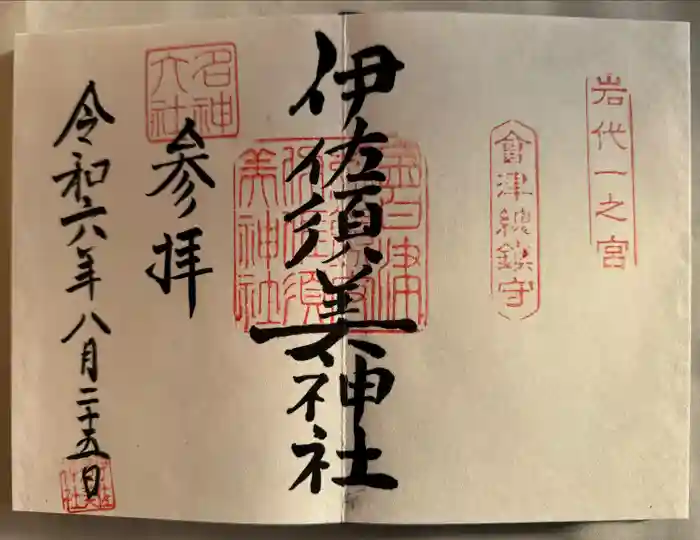 岩代一之宮
會津総鎮守
伊佐須美神社
名神大社
参拝
令和六年八月二十五日